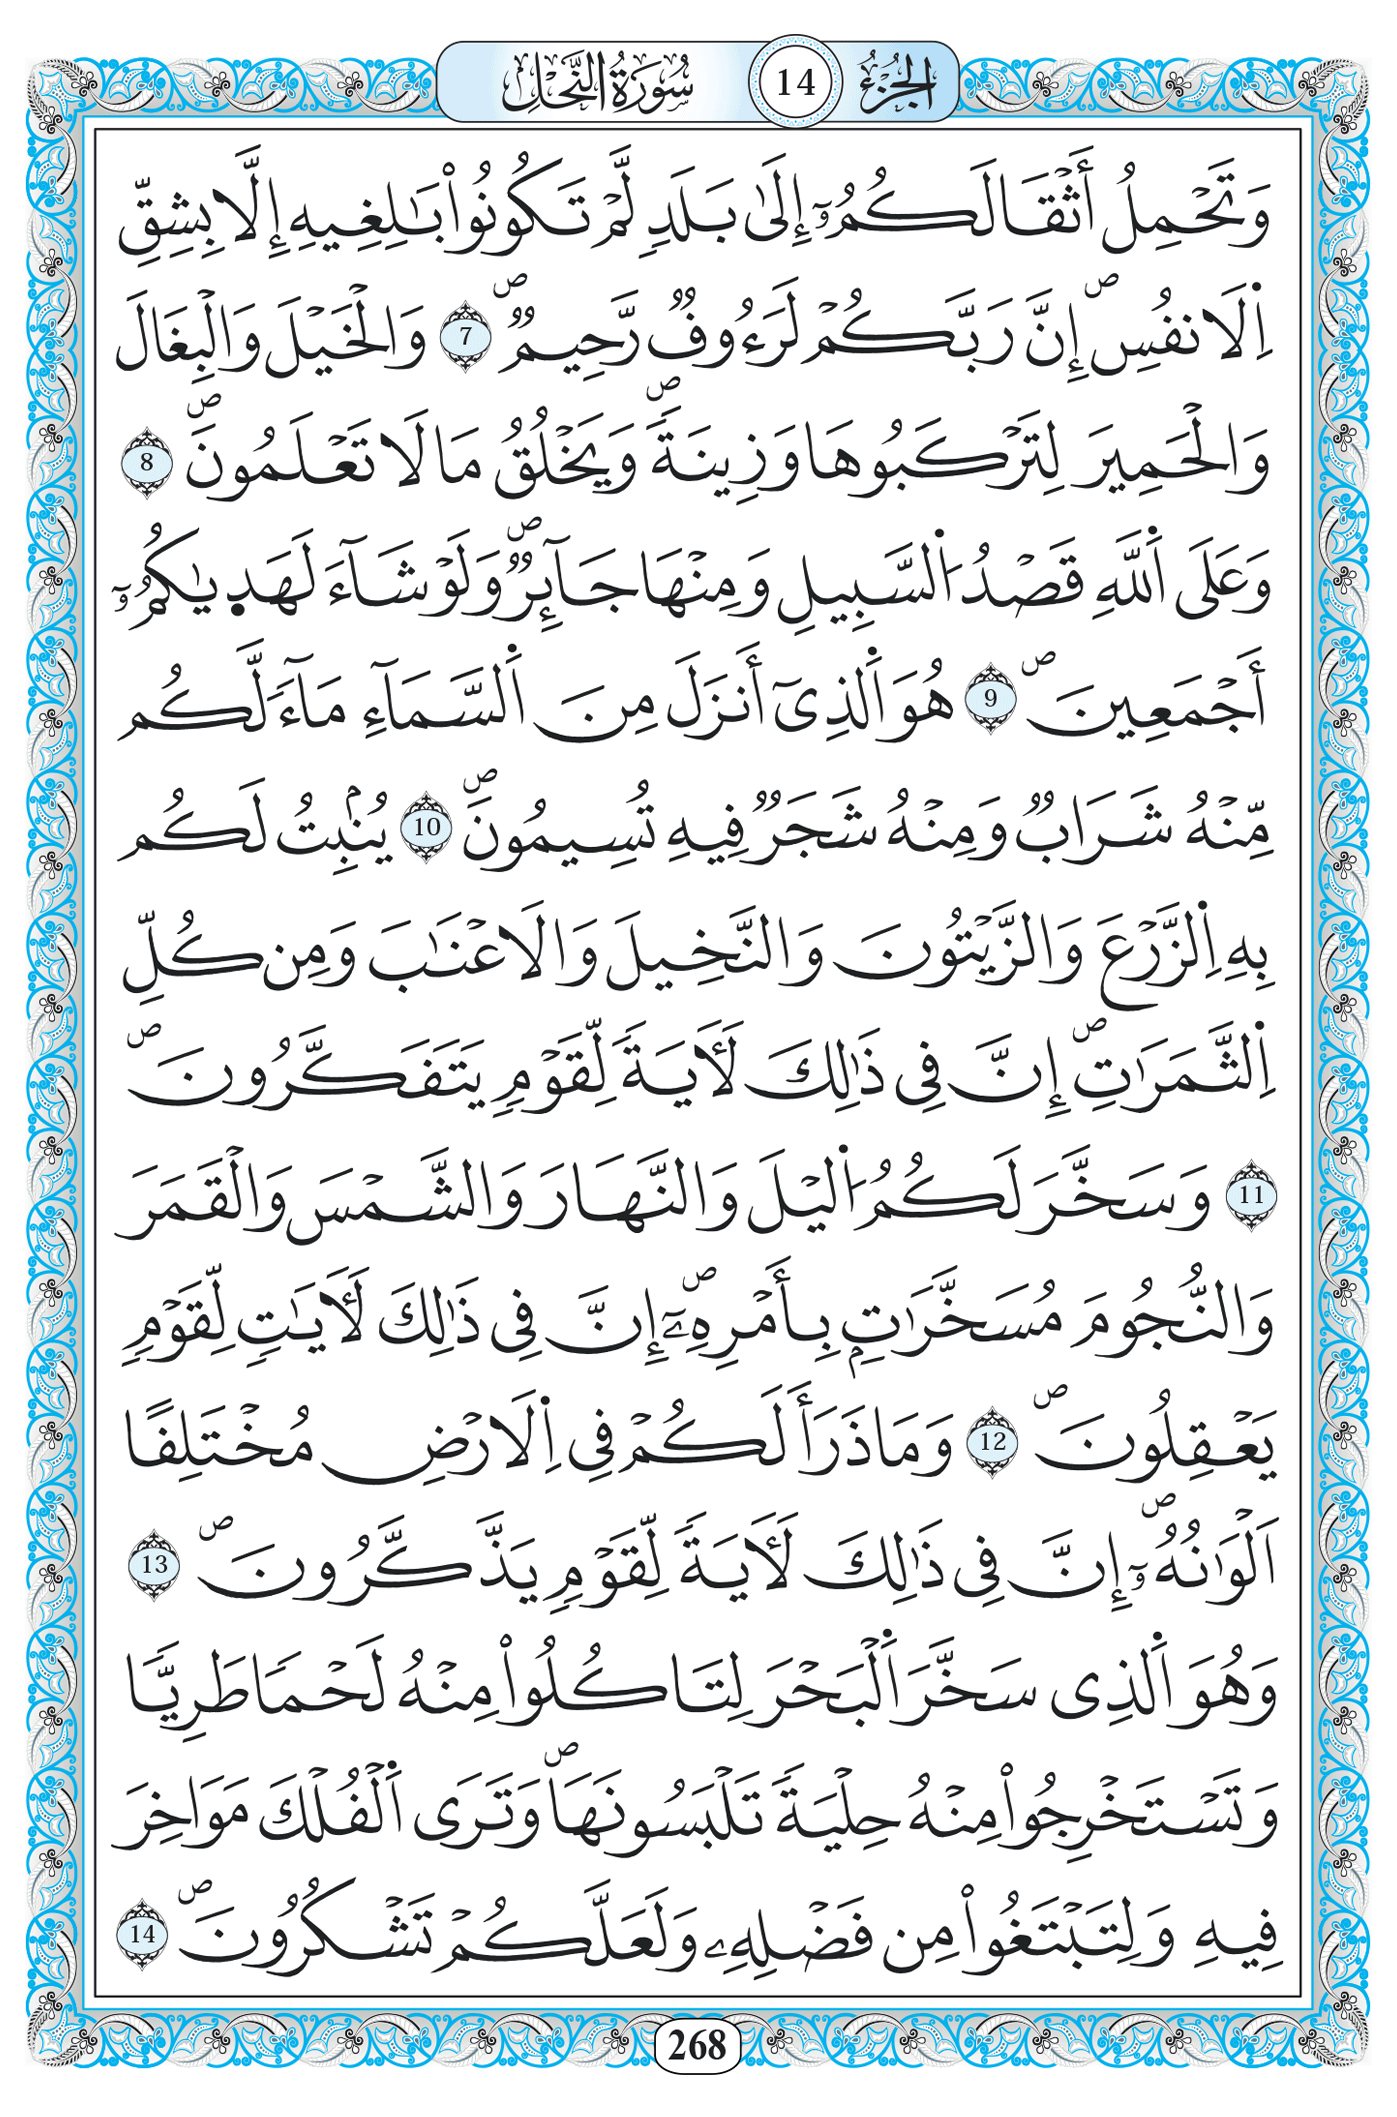 الجُزْءُ 14 سُورَةُ النَّحْلِ
وَتَحْمِلُ أَثْقَالَكُمُۥٓ إِلَىٰ بَلَدٖ لَّمْ تَكُونُواْ بَٰلِغِيهِ إِلَّا بِشِقِّ
اِ۬لَانفُسِۖ إِنَّ رَبَّكُمْ لَرَءُوفٞ رَّحِيمٞۖ 7 وَالْخَيْلَ وَالْبِغَالَ
وَالْحَمِيرَ لِتَرْكَبُوهَا وَزِينَةٗۖ وَيَخْلُقُ مَا لَا تَعْلَمُونَۖ 8
وَعَلَى اَ۬للَّهِ قَصْدُ اُ۬لسَّبِيلِ وَمِنْهَا جَآئِرٞۖ وَلَوْ شَآءَ لَهَدٜيٰكُمُۥٓ
أَجْمَعِينَۖ 9 هُوَ اَ۬لذِےٓ أَنزَلَ مِنَ اَ۬لسَّمَآءِ مَآءٗ لَّكُم
مِّنْهُ شَرَابٞ وَمِنْهُ شَجَرٞ فِيهِ تُسِيمُونَۖ 10 يُنۢبِتُ لَكُم
بِهِ اِ۬لزَّرْعَ وَالزَّيْتُونَ وَالنَّخِيلَ وَالَاعْنَٰبَ وَمِن كُلِّ
اِ۬لثَّمَرَٰتِۖ إِنَّ فِے ذَٰلِكَ لَأٓيَةٗ لِّقَوْمٖ يَتَفَكَّرُونَۖ
11 وَسَخَّرَ لَكُمُ اُ۬ليْلَ وَالنَّهَارَ وَالشَّمْسَ وَالْقَمَرَ
وَالنُّجُومَ مُسَخَّرَٰتِۢ بِأَمْرِهِۦٓۖ إِنَّ فِے ذَٰلِكَ لَأٓيَٰتٖ لِّقَوْمٖ
يَعْقِلُونَۖ 12 وَمَا ذَرَأَ لَكُمْ فِے اِ۬لَارْضِ مُخْتَلِفًا
اَلْوَٰنُهُۥٓۖ إِنَّ فِے ذَٰلِكَ لَأٓيَةٗ لِّقَوْمٖ يَذَّكَّرُونَۖ 13
وَهُوَ اَ۬لذِے سَخَّرَ اَ۬لْبَحْرَ لِتَاكُلُواْ مِنْهُ لَحْمٗا طَرِيّٗا
وَتَسْتَخْرِجُواْ مِنْهُ حِلْيَةٗ تَلْبَسُونَهَاۖ وَتَرَى اَ۬لْفُلْكَ مَوَاخِرَ
فِيهِ وَلِتَبْتَغُواْ مِن فَضْلِهِۦ وَلَعَلَّكُمْ تَشْكُرُونَۖ 14
268